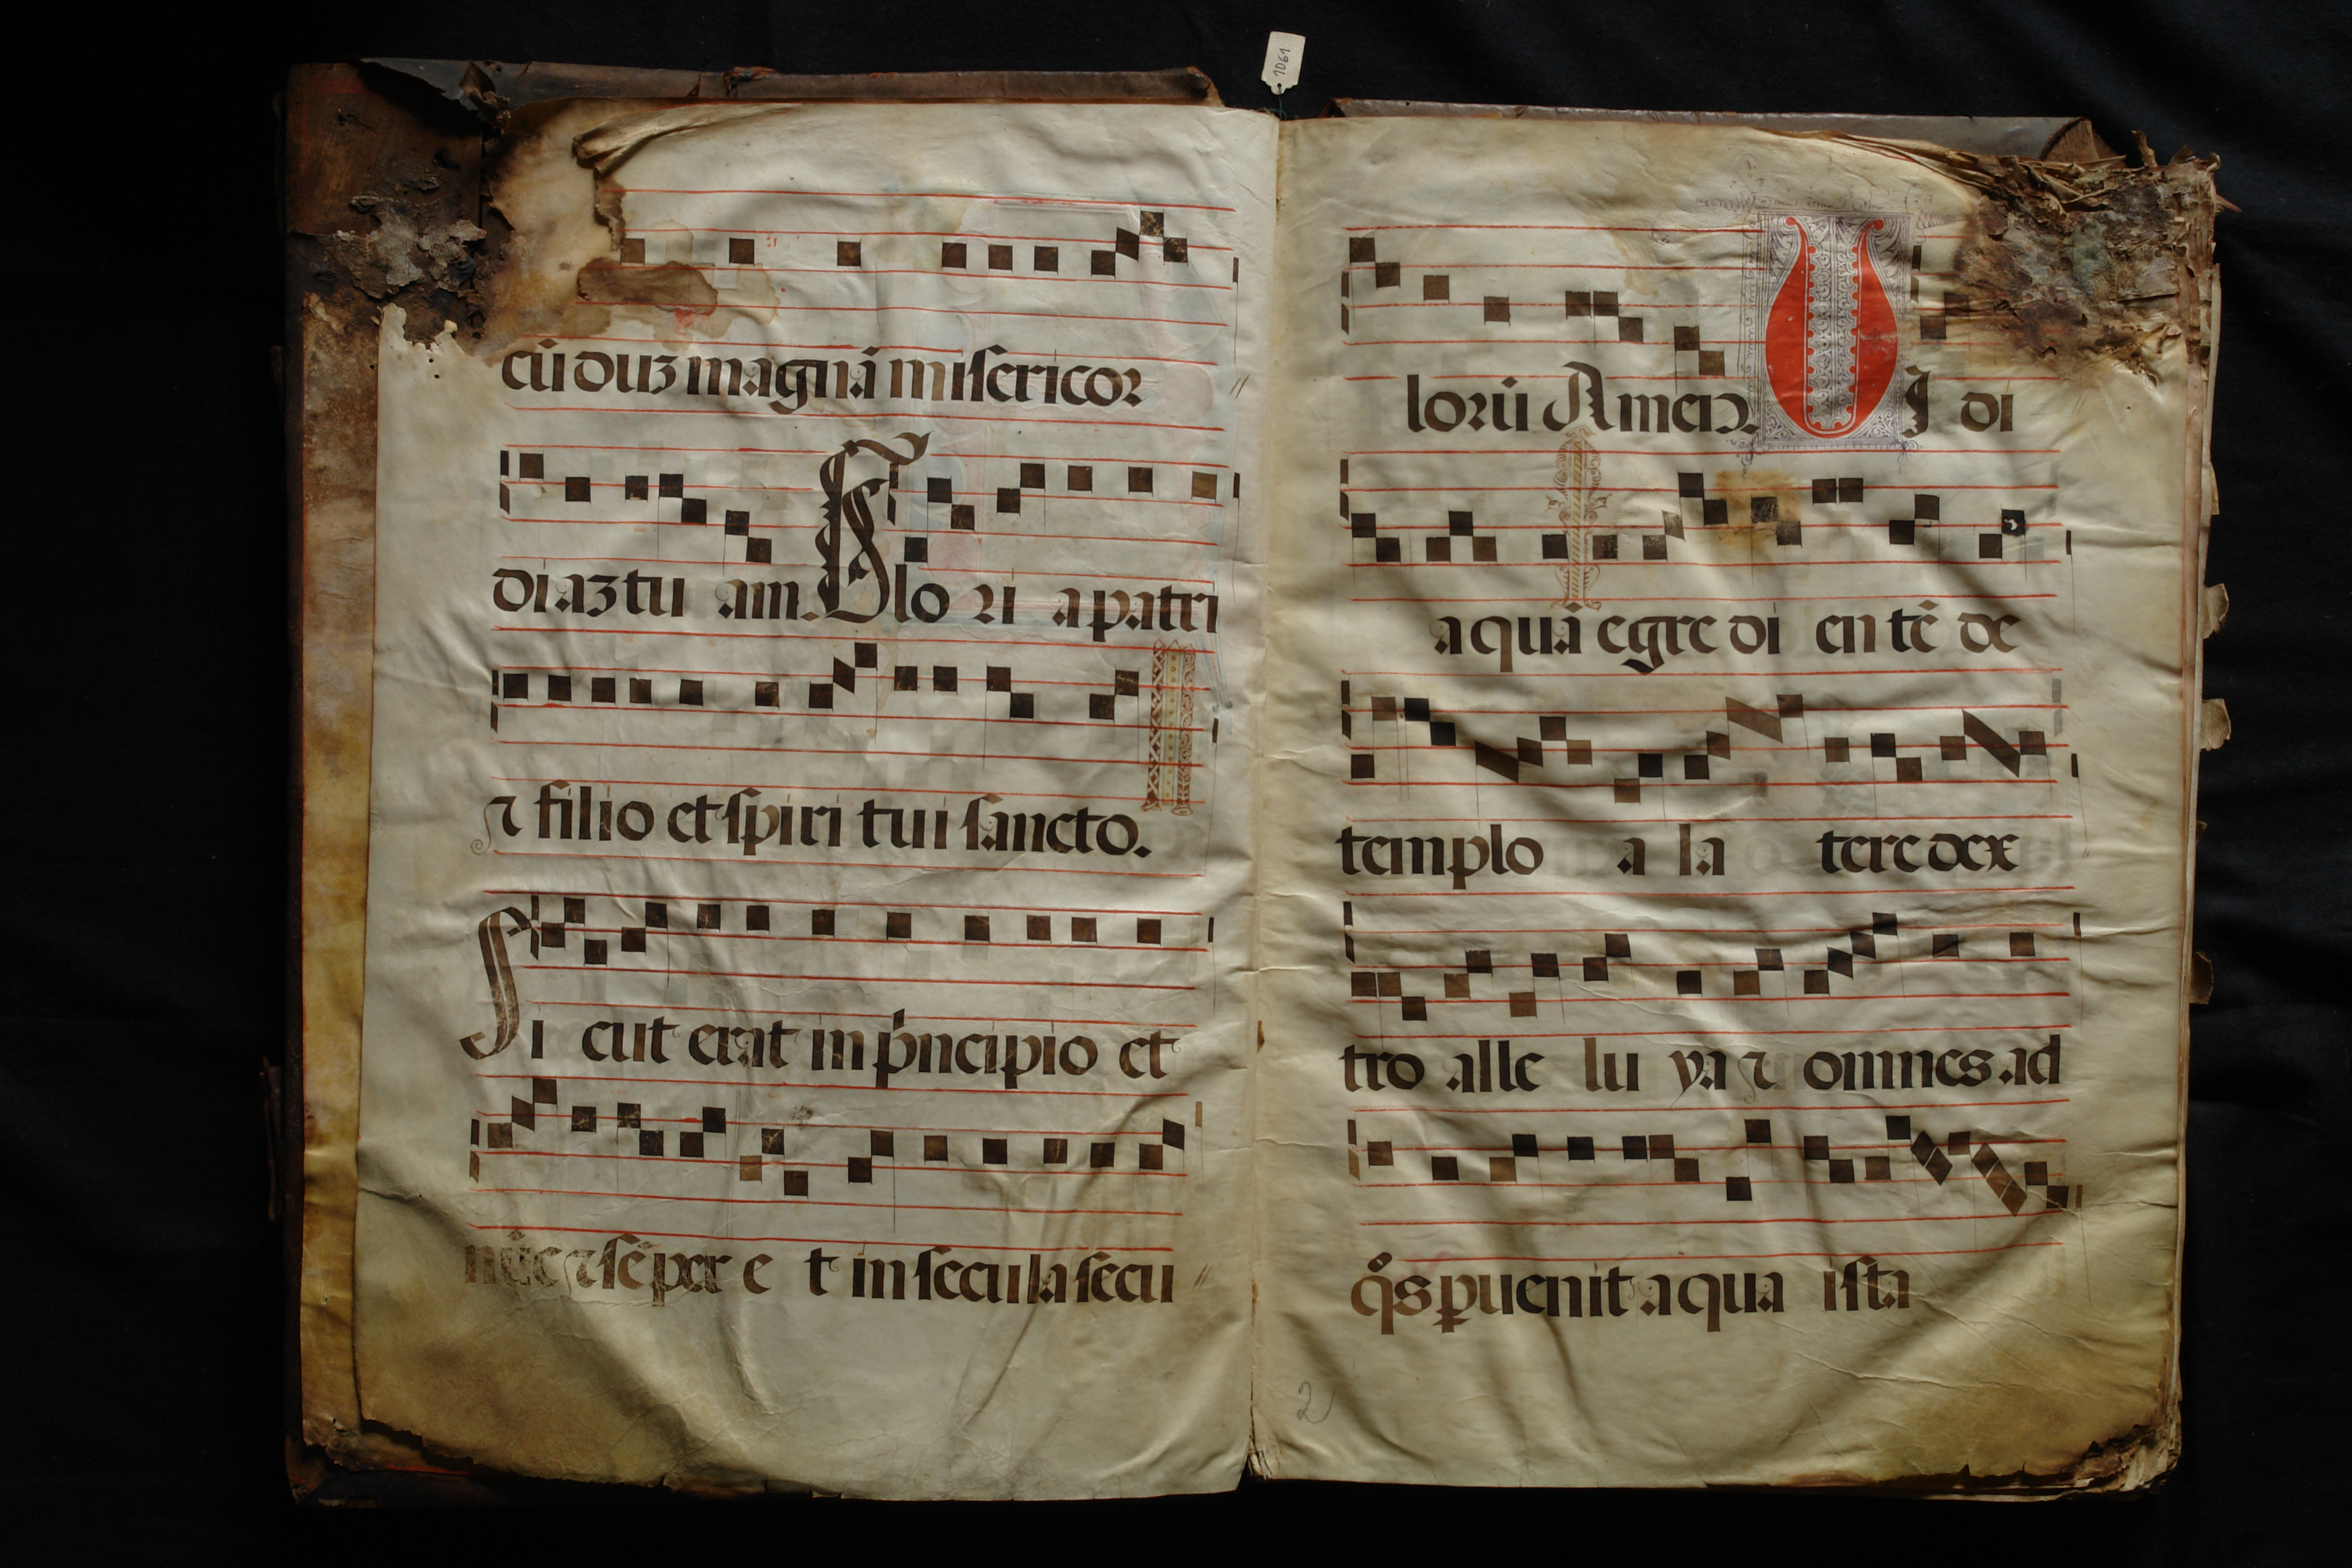 1061
cū duz magnā misericor
diaz tu am. Glo ri a patri
⁊ filio et spiri tui sancto.
Si cut erat in pͥncipio et
nūc ⁊ sēper e t in secula secu
lorū Amen. UI di
aquā egre di en tē de
templo a la tere dex
tro alle lu ya ⁊ omnes ad
qͦs ꝑuenit aqua ista
2